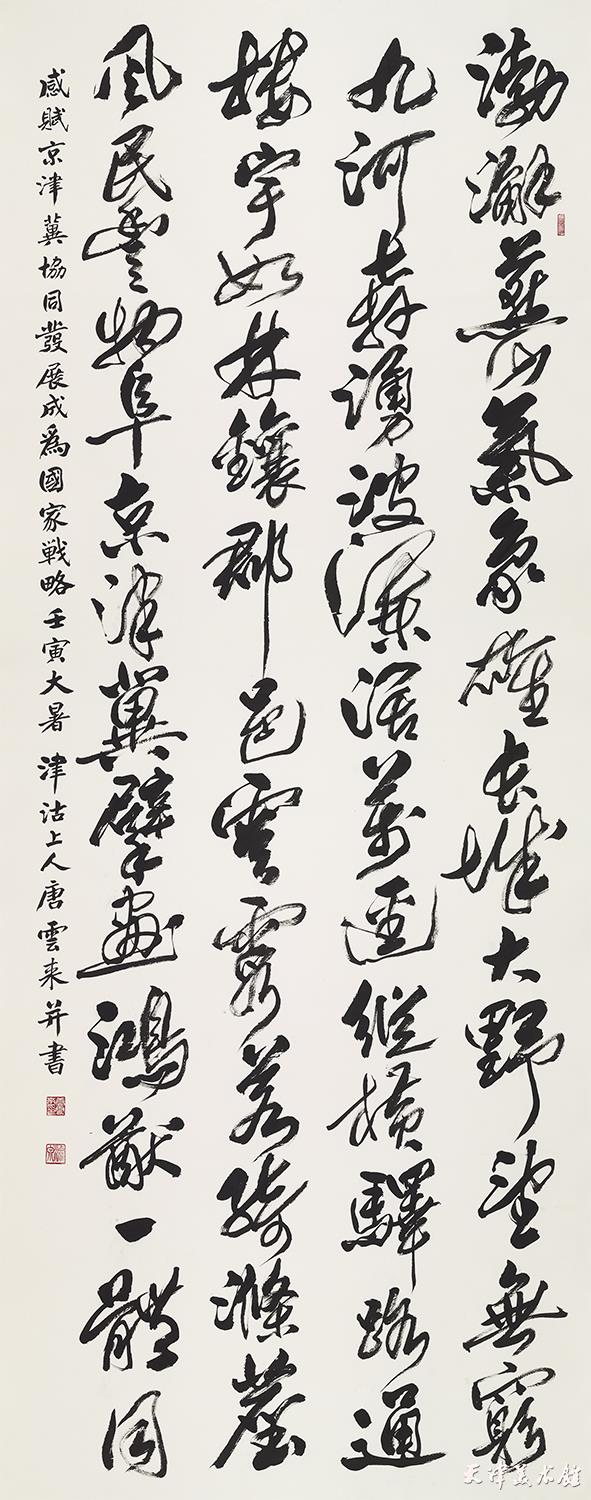 渤澥燕山氣象雄長城大野望無窮
九河奔湧波瀾濶萬逕縱橫驛路通
樓宇如林鑲郡邑雲霞若綺滌塵
風民豐物阜京津冀擘畫鴻猷一體同
感賦京津冀協同發展成為國家戰略壬寅大暑 津沽上人唐雲来并書
天津美术馆